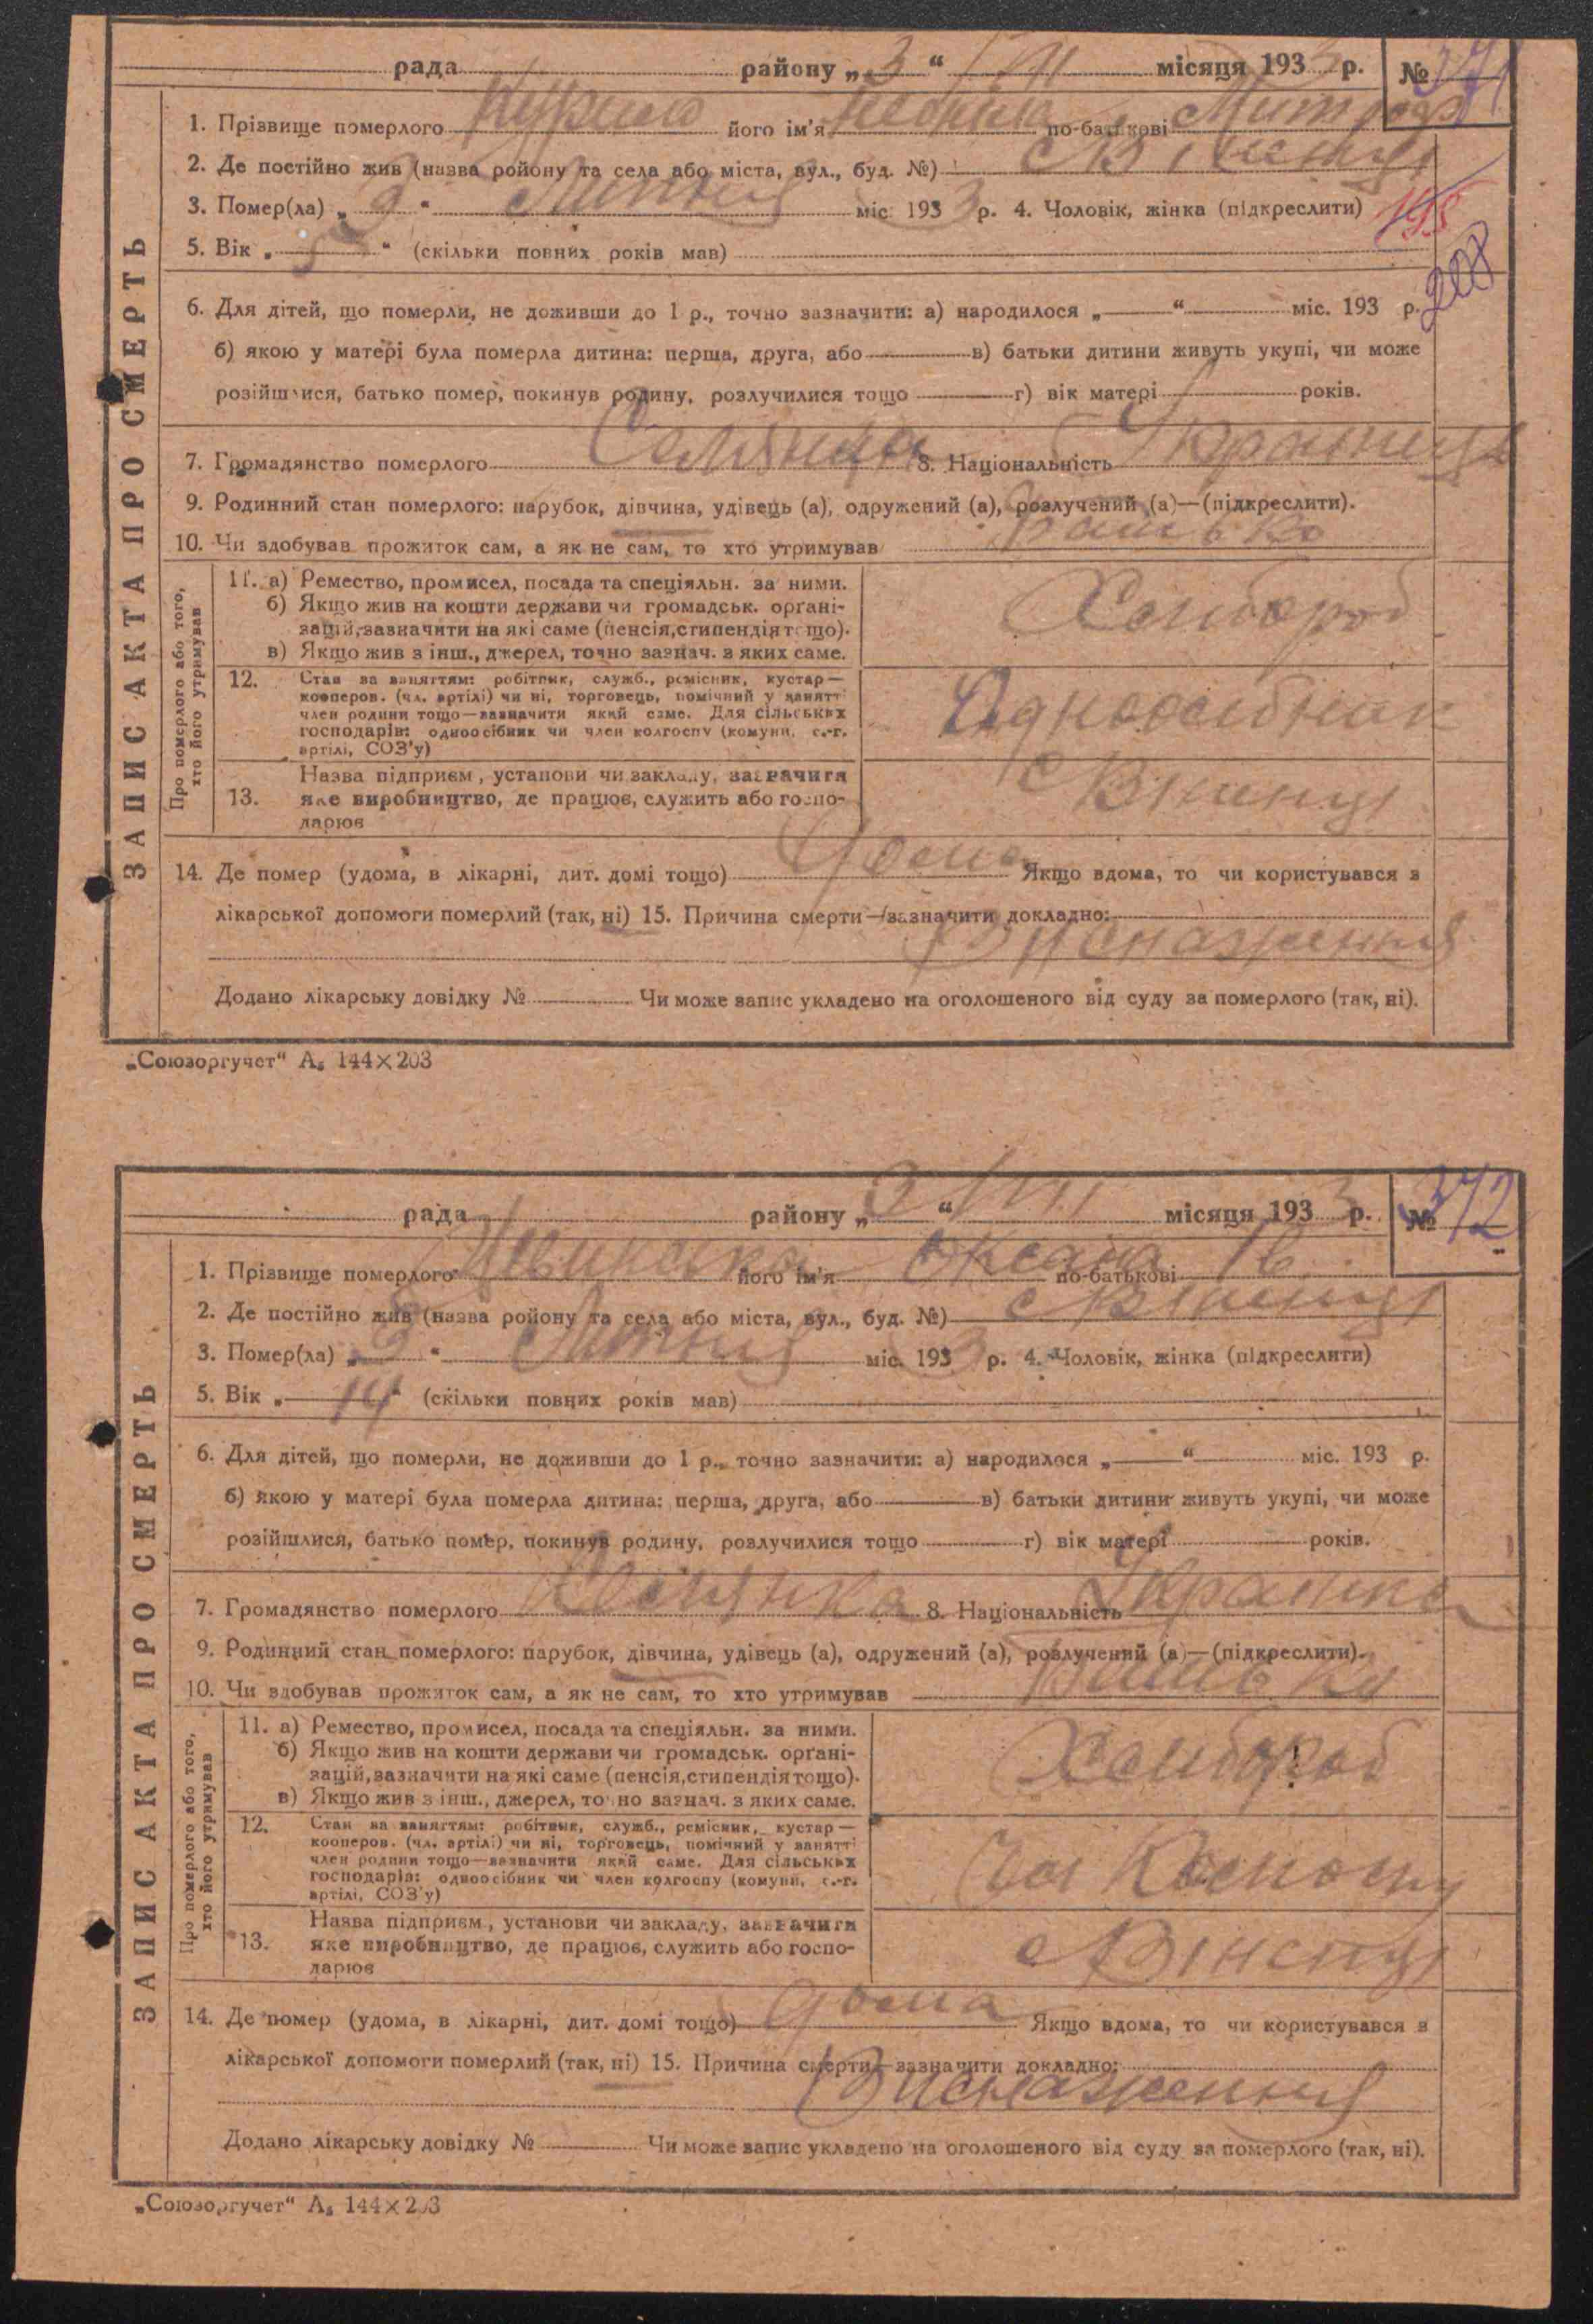 рада району „ 3 “ VII місяця 193 3 р. № 371
1. Прізвище померлого його ім'я по-батькові
2. Де постійно жив (назва ройону та села або міста, вул., буд. №) с
3. Помер(ла) „ “ Липня міс. 193 3 р. 4. Чоловік, жінка (підкреслити) 195
208
5. Вік „ “ (скільки повних років мав)
6. Для дітей, що померли, не доживши до 1 р., точно зазначити: а) народилося „ “ міс. 193 р.
б) якою у матері була померла дитина: перша, друга, або в) батьки дитини живуть укупі, чи може
розійшлися, батько помер, покинув родину, розлучилися тощо г) вік матері років.
7. Громадянство померлого 8. Національність
9. Родинний стан померлого: парубок, дівчина, удівець (а), одружений (а), розлучений (а)—(підкреслити).
10. Чи здобував прожиток сам, а як не сам, то хто утримував Батько
ЗАПИС АКТА ПРО СМЕРТЬ
Про померлого або того, хто його утримував
11. а) Ремество, промисел, посада та спеціяльн. за ними.
б) Якщо жив на кошти держави чи громадськ. орґані-
зацій, зазначити на які саме (пенсія, стипендія тощо).
в) Якщо жив з інш., джерел, точно зазнач. з яких саме.
Хлибороб
12. Стан за заняттям: робітник, служб., ремісник, кустар—
кооперов. (чл. артілі) чи ні, торговець, помічний у занятті
член родини тощо—зазначити який саме. Для сільських
господарів: одноосібник чи член колгоспу (комуни, с.-г.
артілі, СОЗ'у)
Одноосибник
13. Назва підприєм., установи чи закладу, зазначити
яке виробництво, де працює, служить або госпо-
дарює
с
14. Де помер (удома, в лікарні, дит. домі тощо) Дома Якщо вдома, то чи користувався з
лікарської допомоги померлий (так, ні) 15. Причина смерти—зазначити докладно:
Виснаження
Додано лікарську довідку № Чи може запис укладено на оголошеного від суду за померлого (так, ні).
„Союзоргучет“ А₅ 144×203
рада району „ 3 “ VII місяця 193 3 р. № 372
1. Прізвище померлого його ім'я Оксана по-батькові Ів.
2. Де постійно жив (назва ройону та села або міста, вул., буд. №) с
3. Помер(ла) „ 3 “ Липня міс. 193 3 р. 4. Чоловік, жінка (підкреслити)
5. Вік „ 14 “ (скільки повних років мав)
6. Для дітей, що померли, не доживши до 1 р., точно зазначити: а) народилося „ “ міс. 193 р.
б) якою у матері була померла дитина: перша, друга, або в) батьки дитини живуть укупі, чи може
розійшлися, батько помер, покинув родину, розлучилися тощо г) вік матері років.
7. Громадянство померлого Селянка 8. Національність Украинка
9. Родинний стан померлого: парубок, дівчина, удівець (а), одружений (а), розлучений (а)—(підкреслити).
10. Чи здобував прожиток сам, а як не сам, то хто утримував Батьки
ЗАПИС АКТА ПРО СМЕРТЬ
Про померлого або того, хто його утримував
11. а) Ремество, промисел, посада та спеціяльн. за ними.
б) Якщо жив на кошти держави чи громадськ. орґані-
зацій, зазначити на які саме (пенсія, стипендія тощо).
в) Якщо жив з інш., джерел, точно зазнач. з яких саме.
Хлибороб
12. Стан за заняттям: робітник, служб., ремісник, кустар—
кооперов. (чл. артілі) чи ні, торговець, помічний у занятті
член родини тощо—зазначити який саме. Для сільських
господарів: одноосібник чи член колгоспу (комуни, с.-г.
артілі, СОЗ'у)
13. Назва підприєм., установи чи закладу, зазначити
яке виробництво, де працює, служить або госпо-
дарює
с
14. Де помер (удома, в лікарні, дит. домі тощо) Дома Якщо вдома, то чи користувався з
лікарської допомоги померлий (так, ні) 15. Причина смерти—зазначити докладно:
Виснаження
Додано лікарську довідку № Чи може запис укладено на оголошеного від суду за померлого (так, ні).
„Союзоргучет“ А₅ 144×203